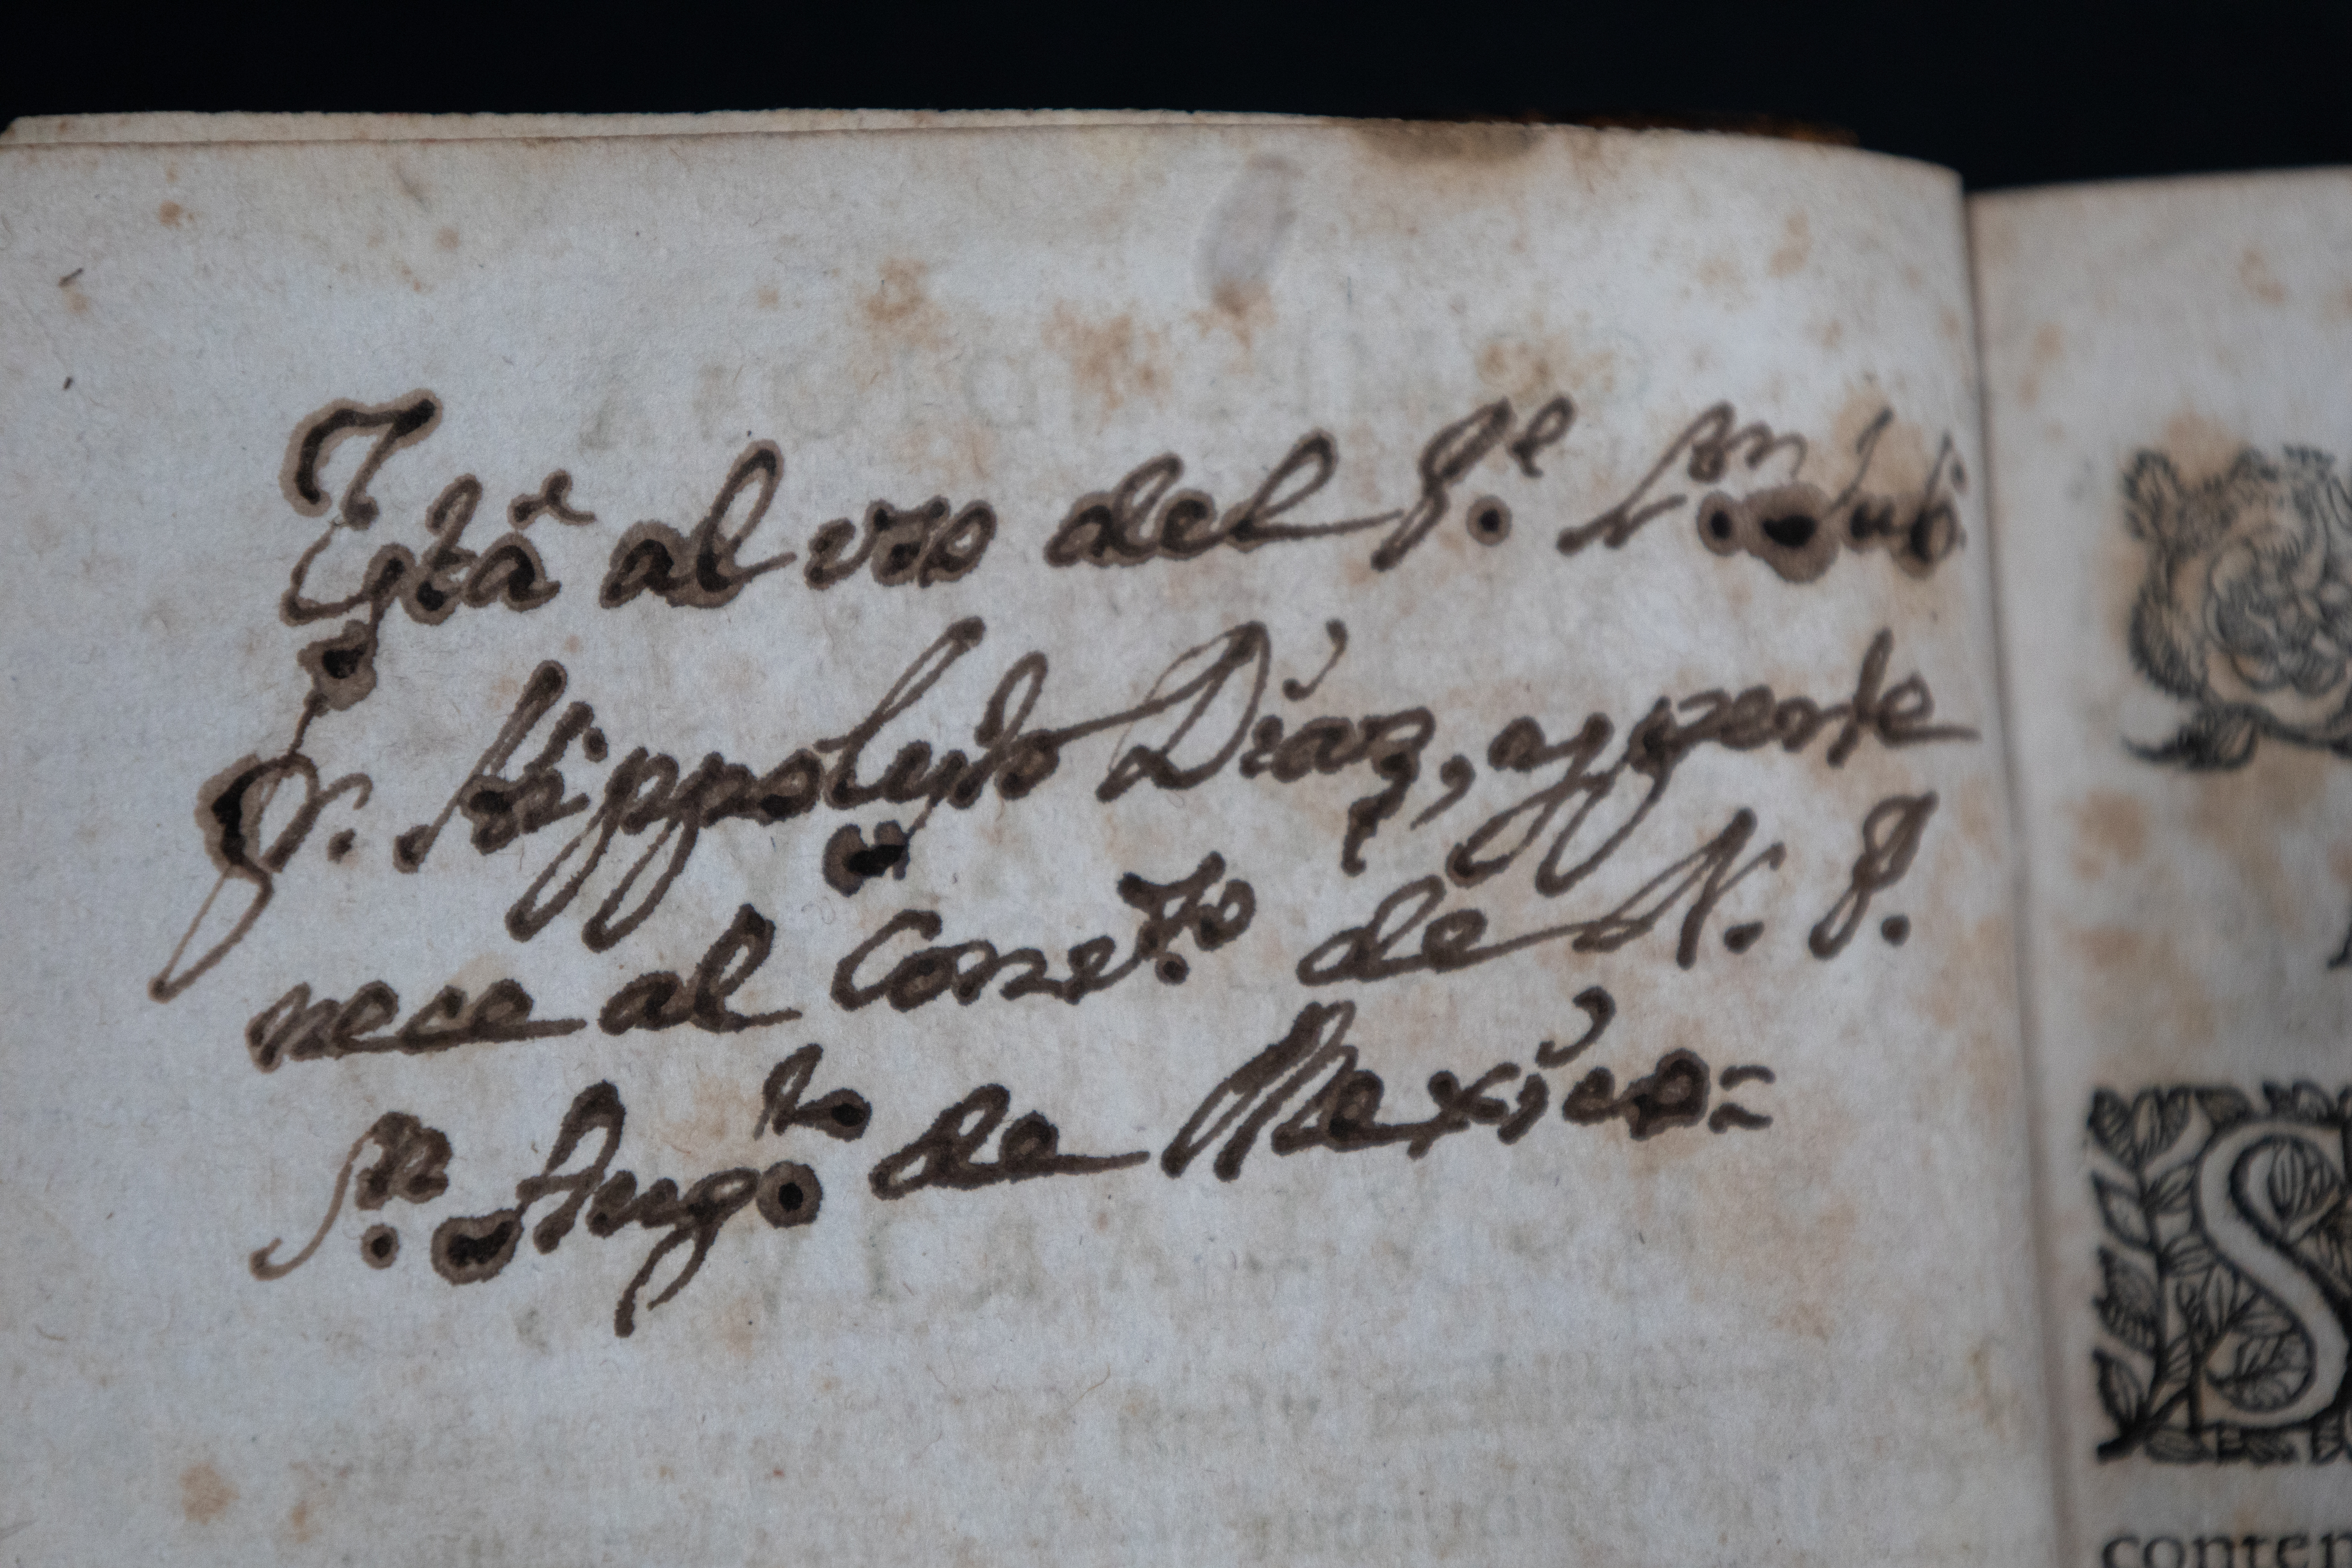 Está al vso del P.e L.on Jub.
Fr. Hippolyto Díaz, y perte
nece al Conv.to de N. P.
S.n Aug.to de México=
S
conten